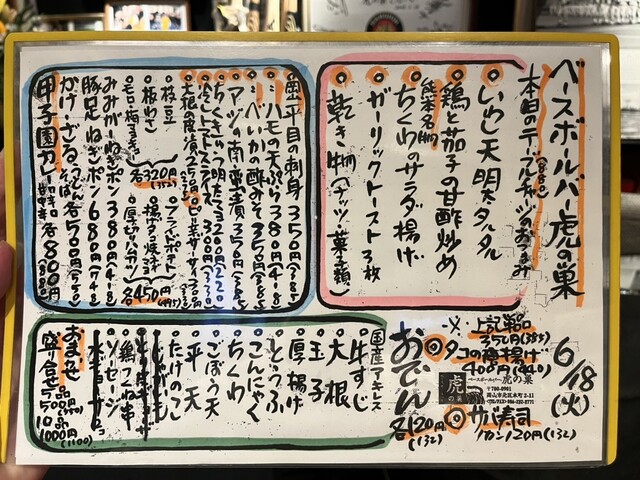 ベースボールバー虎の巣
本日のテーブルチャージのおつまみ
6/18(火)
◎いわし天明太タルタル
◎鶏と茄子の甘酢炒め
◎ちくわのサラダ揚げ
◎ガーリックトースト3枚
◎乾き物(ナッツ、菓子類)
上記単品
350円(385)
◎タコの唐揚げ
400円(440)
ベースボールバー 虎の巣
〒700-0901
岡山市北区本町2-11
◎サバ寿司
1カン120円(132)
◎平目の刺身350円(385)
◎ハモの天ぷら380円(418)
◎べいかの酢みそ350円(385)
◎アジの南蛮漬350円(385)
ちくわきゅうり明太マヨ200円(220)
冷しトマトスライス300円(330)
◎枝豆
◎板わさ
各320円(352)
◎フライドポテト
◎厚切ハムカツ
各450円(495)
みみガーねぎポン380円(418)
豚足ねぎポン680円(748)
かけ、ざる
うどん
そば
各500円(550)
甲子園カレー
甘口
中辛
辛口
各800円(880)
おでん
各120円(132)
国産アキレス
◎牛すじ
◎大根
◎玉子
◎厚揚げ
◎とうふ
◎こんにゃく
◎ちくわ
◎ごぼう天
◎平天
◎たけのこ
◎鶏つくね串
◎ソーセージ
おまかせ
盛り合せ
5品
500円(550)
10品
1000円(1100)